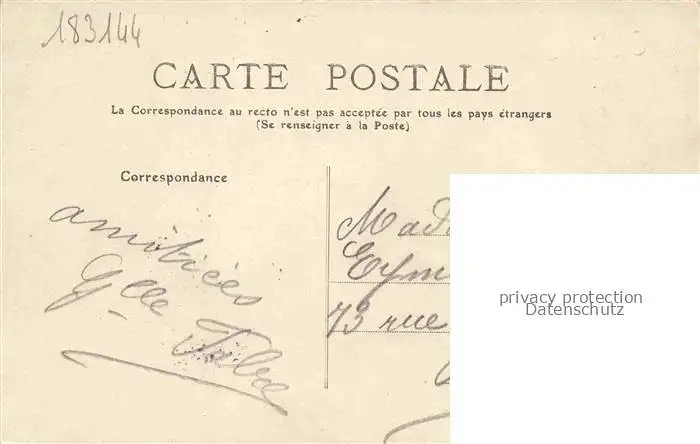 183144
CARTE POSTALE
La Correspondance au recto n'est pas acceptée par tous les pays étrangers
(Se renseigner à la Poste)
Correspondance
amitiées
Gelle Fabre
Mad
Eym
73 rue
privacy protection
Datenschutz